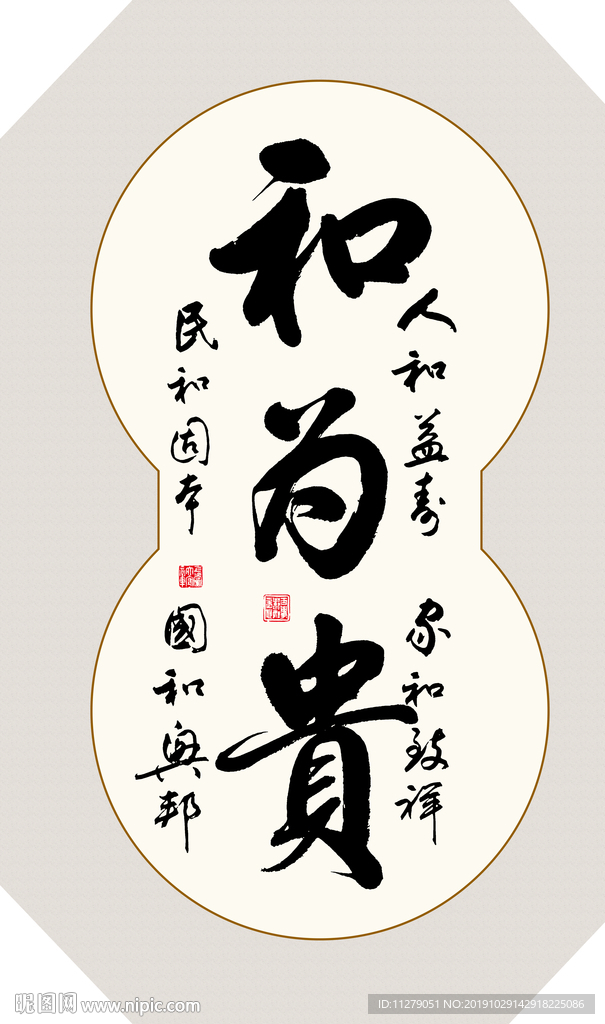 和为貴
人和益寿
家和致祥
民和固本
國和興邦
昵图网 www.nipic.com
ID:11279051 NO:20191029142918225086